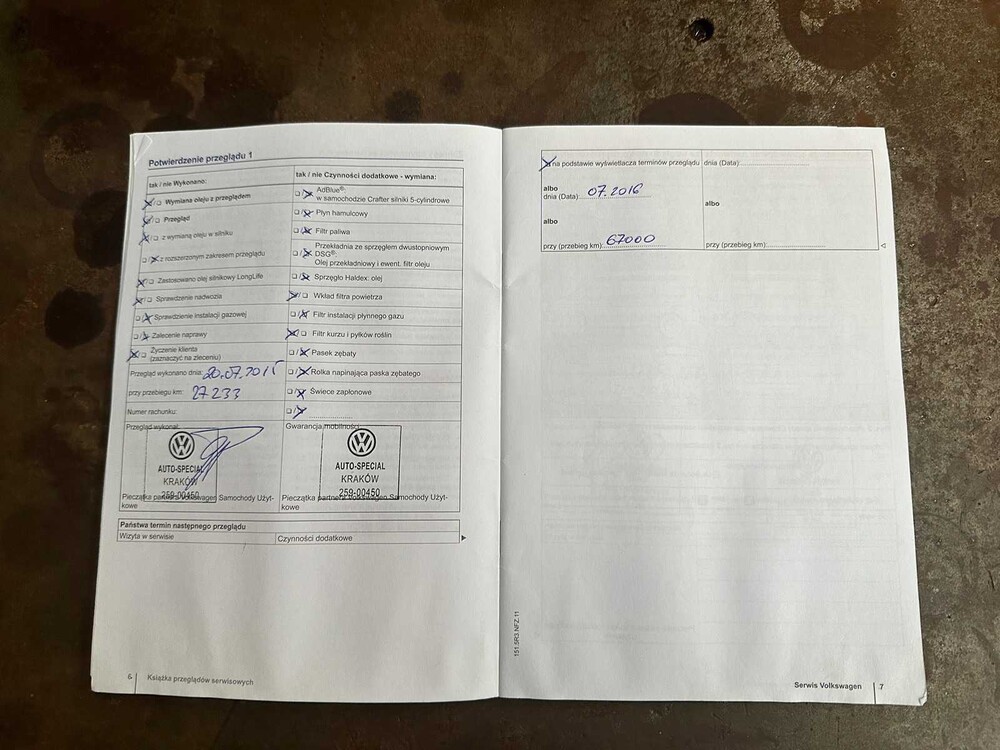 Potwierdzenie przeglądu 1
tak / nie Wykonano:
Wymiana oleju z przeglądem
Przegląd
z wymianą oleju w silniku
z rozszerzonym zakresem przeglądu
Zastosowano olej silnikowy LongLife
Sprawdzenie nadwozia
Sprawdzienie instalacji gazowej
Zalecenie naprawy
Życzenie klienta
(zaznaczyć na zleceniu)
Przegląd wykonano dnia: 20.07.2015
przy przebiegu km: 27233
Numer rachunku:
Przegląd wykonał:
AUTO-SPECJAL
KRAKÓW
259-00450
Pieczątka partnera Volkswagen Samochody Użyt-
kowe
tak / nie Czynności dodatkowe - wymiana:
AdBlue®:
w samochodzie Crafter silniki 5-cylindrowe
Płyn hamulcowy
Filtr paliwa
Przekładnia ze sprzęgłem dwustopniowym
DSG®:
Olej przekładniowy i ewent. filtr oleju
Sprzęgło Haldex: olej
Wkład filtra powietrza
Filtr instalacji płynnego gazu
Filtr kurzu i pyłków roślin
Pasek zębaty
Rolka napinająca paska zębatego
Świece zapłonowe
Gwarancja mobilności
AUTO-SPECJAL
KRAKÓW
259-00450
Pieczątka partnera Volkswagen Samochody Użyt-
kowe
Państwa termin następnego przeglądu
Wizyta w serwisie
Czynności dodatkowe
6 Książka przeglądów serwisowych
na podstawie wyświetlacza terminów przeglądu
albo
dnia (Data) 07.2016
albo
przy (przebieg km): 67000
dnia (Data):
albo
przy (przebieg km):
151.5R3.NFZ.11
Serwis Volkswagen 7